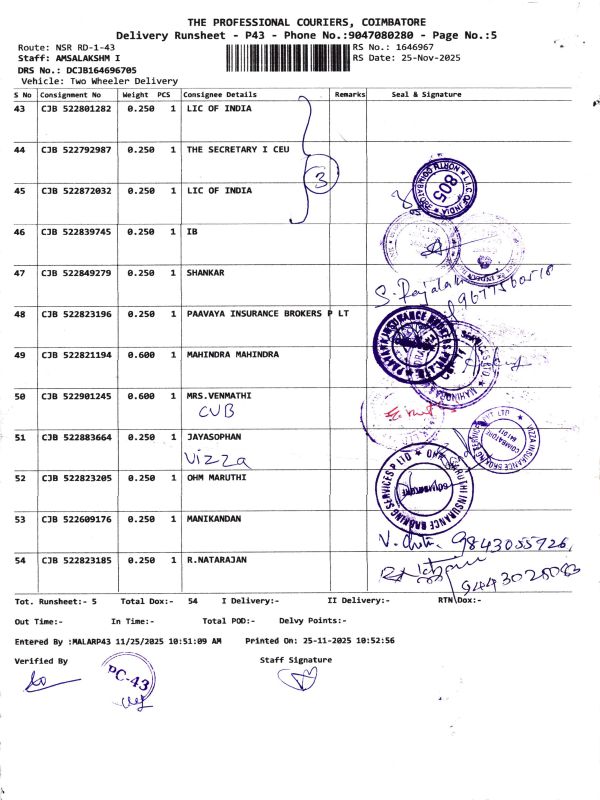 THE PROFESSIONAL COURIERS, COIMBATORE
Delivery Runsheet - P43 - Phone No.:9047080280 - Page No.:5
Route: NSR RD-1-43 RS No.: 1646967
Staff: AMSALAKSHM I RS Date: 25-Nov-2025
DRS No.: DCJB164696705
Vehicle: Two Wheeler Delivery
S No Consignment No Weight PCS Consignee Details Remarks Seal & Signature
43 CJB 522801282 0.250 1 LIC OF INDIA
44 CJB 522792987 0.250 1 THE SECRETARY I CEU
3
45 CJB 522872032 0.250 1 LIC OF INDIA
L.I.C. OF INDIA 805
46 CJB 522839745 0.250 1 IB
47 CJB 522849279 0.250 1 SHANKAR
48 CJB 522823196 0.250 1 PAAVAYA INSURANCE BROKERS P LT
PAAVAYA INSURANCE BROKERS PVT. LTD.
49 CJB 522821194 0.600 1 MAHINDRA MAHINDRA
50 CJB 522901245 0.600 1 MRS.VENMATHI
CUB
51 CJB 522883664 0.250 1 JAYASOPHAN
Vizza
VIZZA INSURANCE BROKING SERVICES PVT LTD
COIMBATORE
52 CJB 522823205 0.250 1 OHM MARUTHI
OHM MARUTHI INSURANCE BROKING SERVICES P LTD
COIMBATORE
53 CJB 522609176 0.250 1 MANIKANDAN
9843055726
54 CJB 522823185 0.250 1 R.NATARAJAN
Tot. Runsheet:- 5 Total Dox:- 54 I Delivery:- II Delivery:- RTN\Dox:-
Out Time:- In Time:- Total POD:- Delvy Points:-
Entered By :MALARP43 11/25/2025 10:51:09 AM Printed On: 25-11-2025 10:52:56
Verified By Staff Signature
PC-43